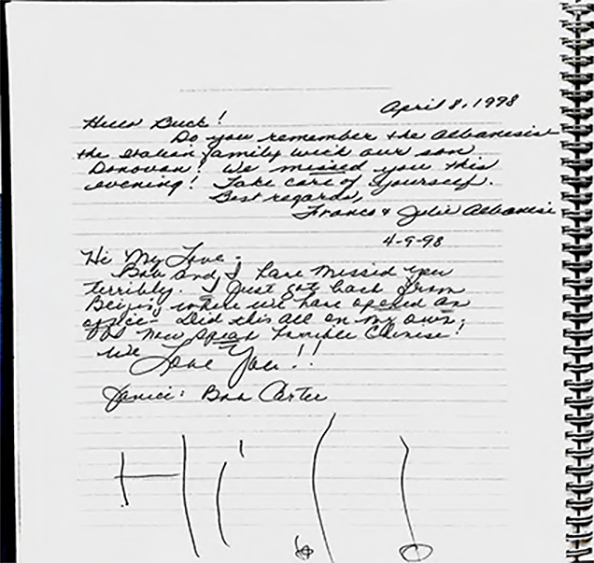 April 8, 1998
Hello Buck!
Do you remember the Albanesis
the Italian family with our son
Donovan? We missed you this
evening! Take care of yourself.
Best regards,
Franco & Julie Albanesi
4-9-98
Hi My Love -
Bob and I have missed you
terribly. I just got back from
Beijing where we have opened an
office - Did this all on my own;
now speak horrible Chinese!
We
Love You!!
Janice & Bob Carter
Hi!!